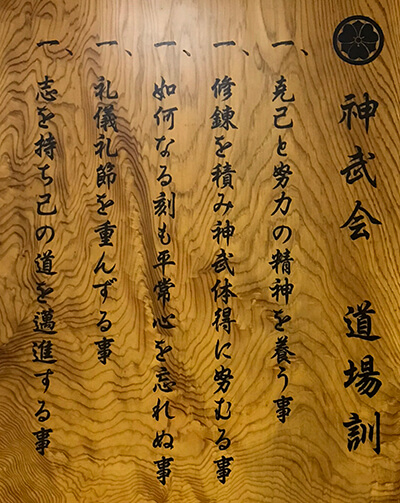 神武会 道場訓
一、克己と努力の精神を養う事
一、修錬を積み神武体得に努むる事
一、如何なる刻も平常心を忘れぬ事
一、礼儀礼節を重んずる事
一、志を持ち己の道を邁進する事